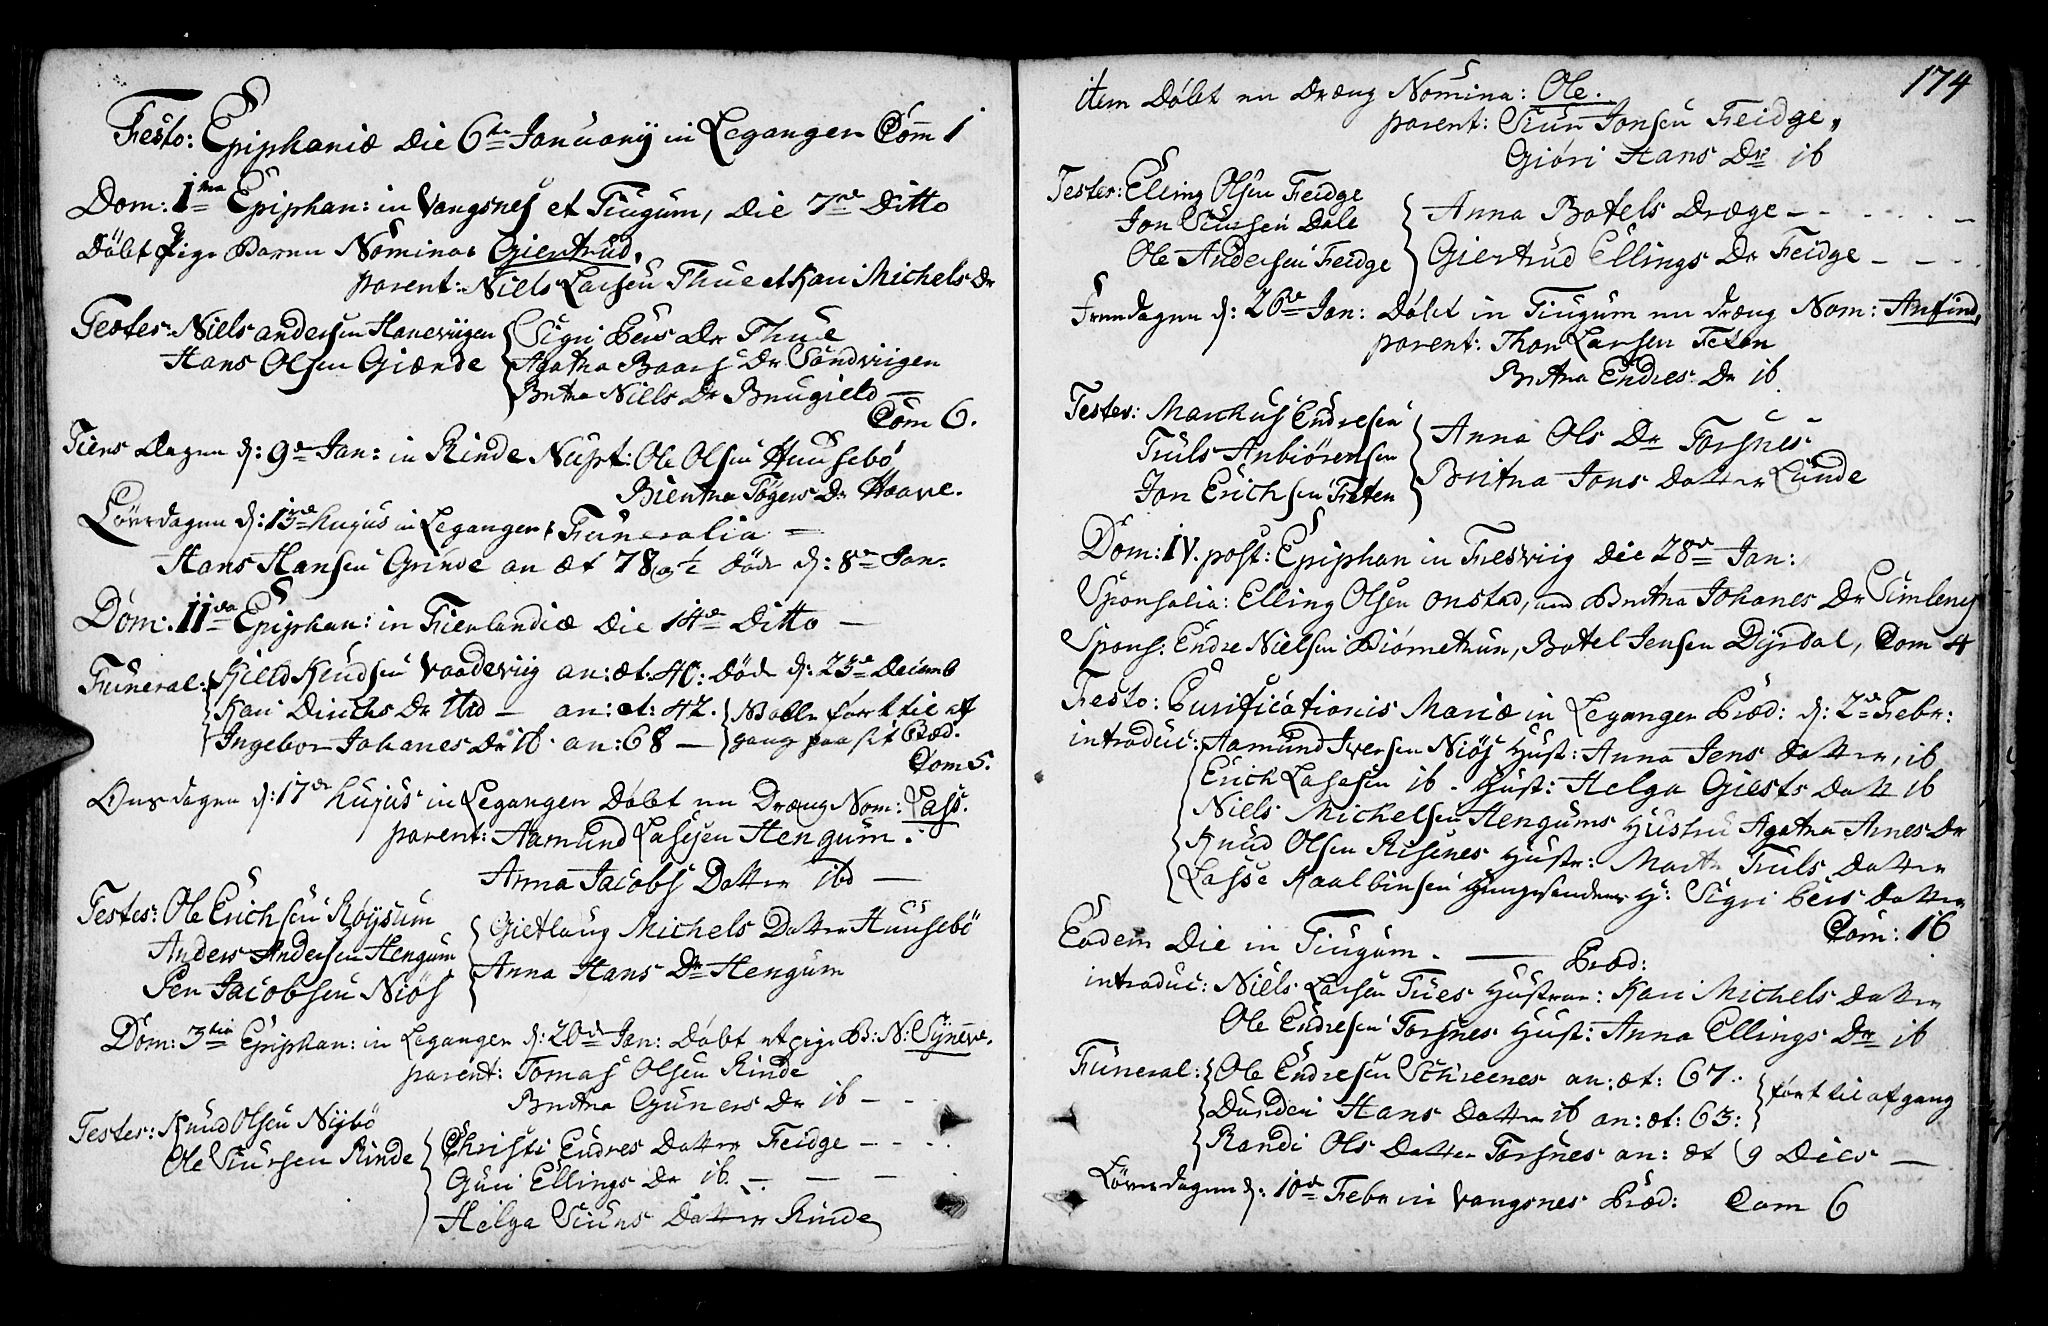 Festo: Epiphaniæ die 6te Januarij in Leganger Com 1
Dom: 1ma Epiphan: in Vangsnes et Tiugum, die 7de Ditto
Døbt pige Barn Nomina: Giertrud,
parent: Niels Larsen Thue et Kari Michels Dr
Testes: Niels andersen Haneviigen { Sigri Pers Dr Thue
Hans Olsen Giærde { Agatha Baars Dr Sandviigen
Britha Niels Dr
Com 6.
Tiens Dagen d: 9de Jan: in Rinde Nupt: Ole Olsen Huusebø
Haave.
Løverdagen d: 13de hujus in Leganger Funeralia —
Hans Hansen Grinde an æt 78 ½ døde d: 8de Jan.
Dom: IIda Epiphan: in Fierlandiæ die 14de Ditto —
Funeral: { Kield Knudsen Vaadeviig an: æt. 40: døde d: 23de Decemb
Kari Dirichs Dr Ibid — an: æt: 42. { Alle ført til af
Ingebor Johanes Dr ib. an: 68 — { gang paa sit Præd.
Com 5.
Onsdagen d: 17de hujus in Leganger Døbt en Dræng Nom: Lass.
parent: Aamund Lassesen Hengum.
Anna Jacobs Datter ibd —
Testes: Ole Erichsen Røysum { Gietlaug Michels Datter Huusebø
Anders Andersen Hengum { Anna Hans Dr Hengum
Per Jacobsen Niøs
Dom: 3tia Epiphan: in Leganger d: 20de Jan: Døbt et pige B: N: Synneve.
parent: Tomas Olsen Rinde
Britha Guners Dr ib — - -
Testes: Knud Olsen Nybø { Christi Endres Datter Feidge — - -
Ole Siursen Rinde { Guri Ellings Dr ib. — — —
Helga Siurs Datter Rinde
174
item Døbt en Dræng Nomina: Ole.
parent: Siur Jonsen Feidge,
Giøri Hans Dr ib
Testes: Elling Olsen Feidge { Anna Botels Dræge — - - - -
Jon Siursen Dale
Ole Andersen Feidge { Giertrud Ellings Dr Feidge — — -
Fredagen d: 26de Jan: Døbt in Tiugum en dræng Nom: Anfind,
parent: Thor Larsen Feten
Britha Endres Dr ib.
Testes: Marchus Endresen { Anna Ols Dr Torsnes
Truls Anbiørensen
Jon Erichsen Feten { Britha Jons Datter Lunde
Dom: IV. post: Epiphan in Fresviig die 28de Jan:
Sponsalia: Elling Olsen Onstad, und Britha Johanes Dr Simlenes
Spons: Endre Nielsen Biørnetun, Botel Jensen Dyrdal, Com 4
Festo: Purificationis Mariæ in Leganger Præd: d: 2de Febr:
introduc: { Aamund Iversen Niøs Hust: Anna Jens datter, ib
Erich Lassesen ib. Hust: Helga Giests Datt ib
Niels Michelsen Hengums Hustru Agatha Arnes Dr
Knud Olsen Risenes Hustr: Marta Truls Datter
Lasse Kaalbensen H: Sigri Pers datter
Com: 16
Eodem Die in Tiugum. — Præd:
introduc: Niels Larsen Tues Hustrue: Kari Michels datter
Ole Endresen Torsnes Hust: Anna Ellings Dr ib
Funeral: { Ole Endresen Schreenes an: æt: 67. { ført til afgang
Durdei Hans datter ib an: æt: 63:
Randi Ols Datter Torsnes an: æt 9 Dies —
Løverdagen d: 10de Febr in Vangsnes Præd: Com 6